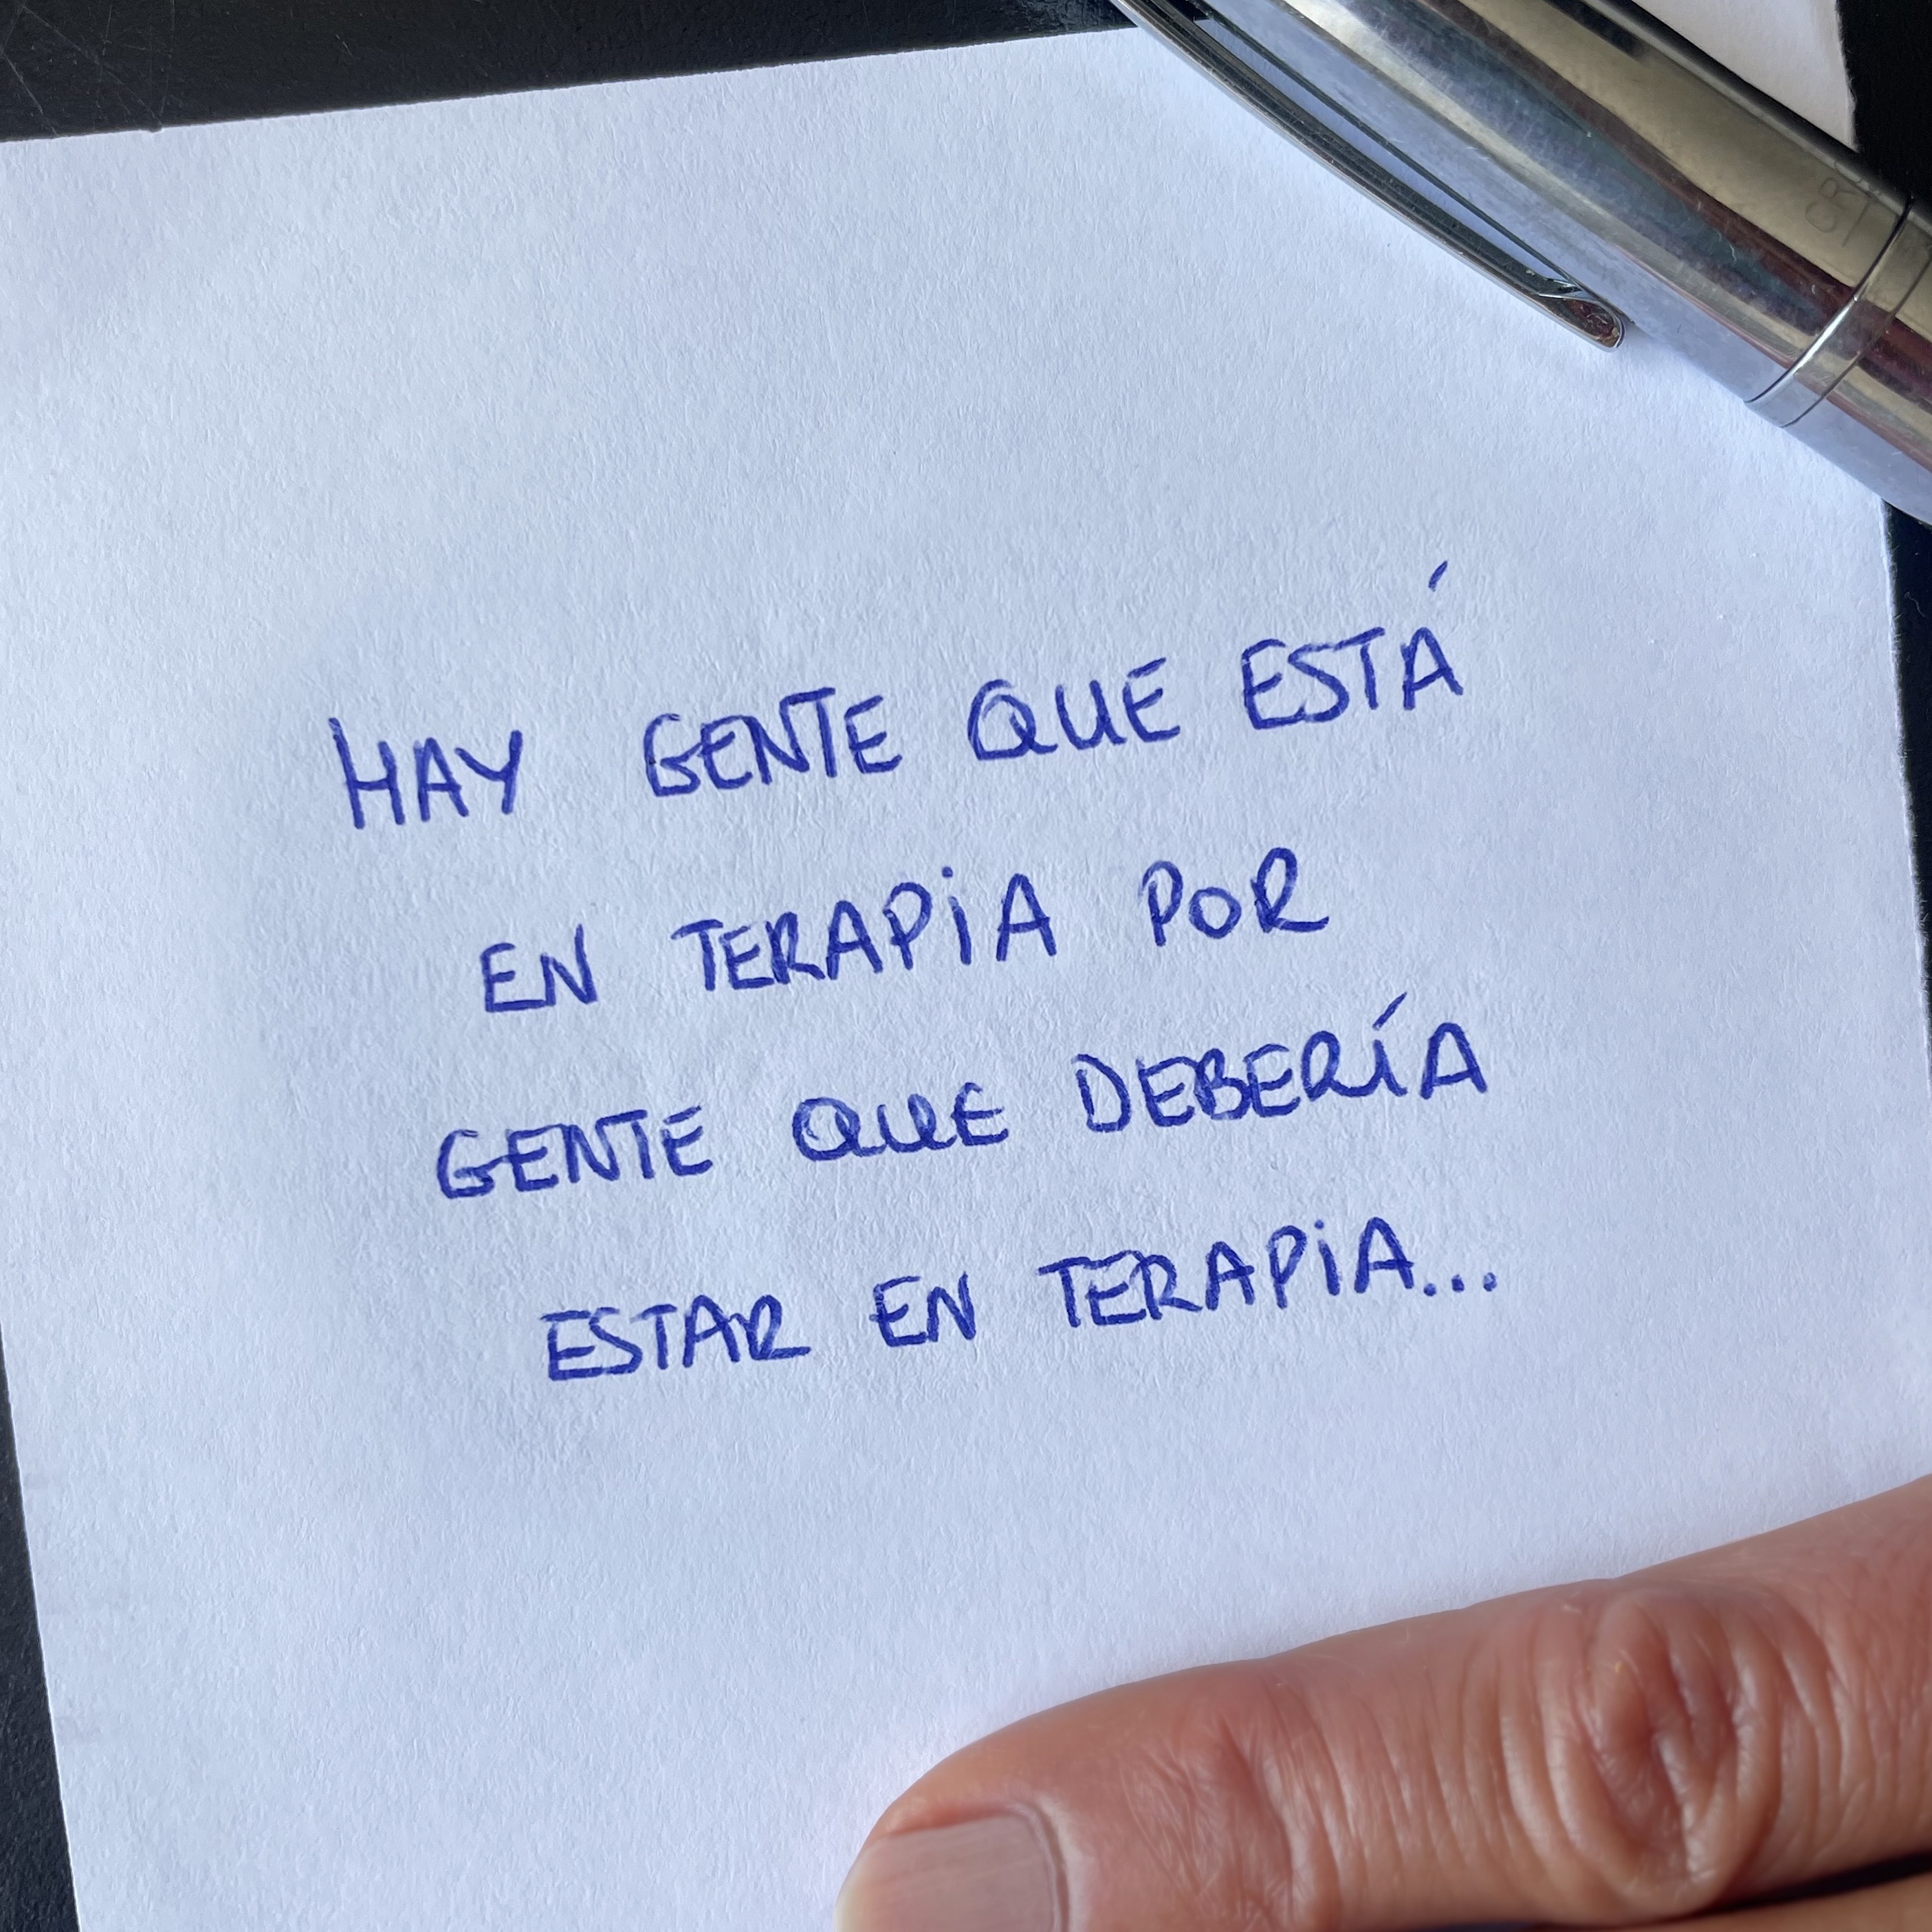 HAY GENTE QUE ESTÁ
EN TERAPIA POR
GENTE QUE DEBERÍA
ESTAR EN TERAPIA...